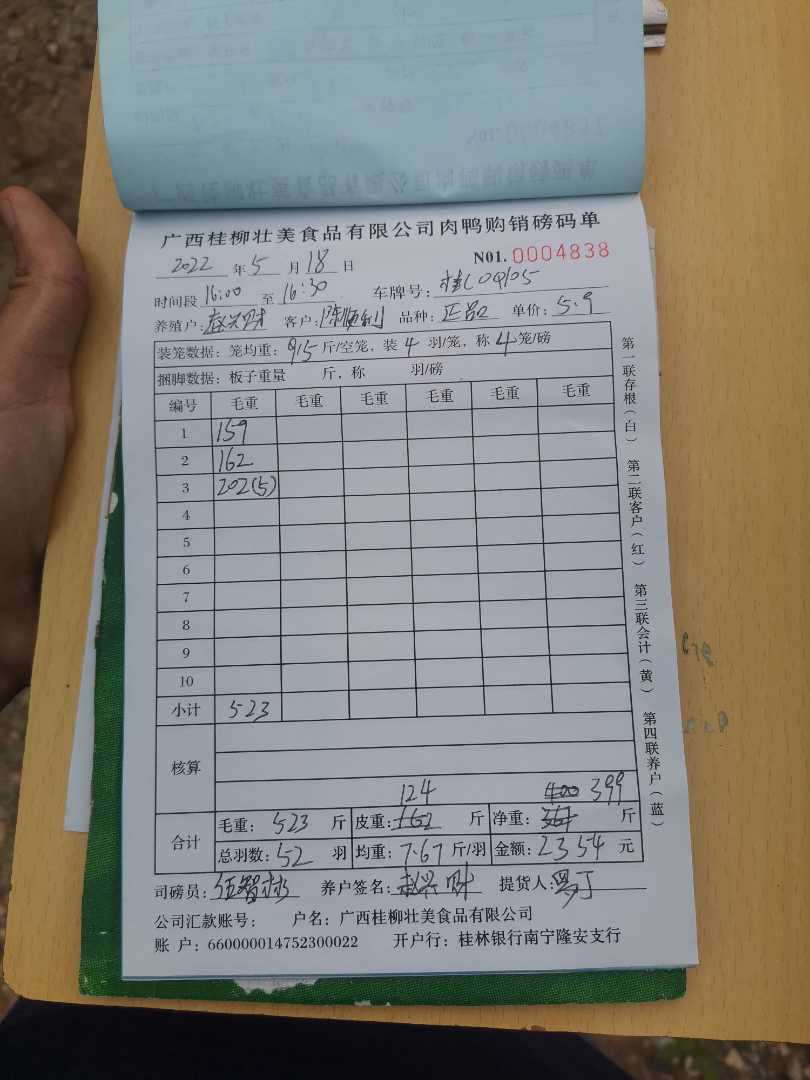 广西桂柳壮美食品有限公司肉鸭购销磅码单
2022 年 5 月 18 日 N01. 0004838
时间段 16:00 至 16:30 车牌号: 桂C0Q105
养殖户: 赵兴财 客户: 陈顺利 品种: 正品 单价: 5.9
装笼数据: 笼均重: 9.5 斤/空笼, 装 4 羽/笼, 称 4 笼/磅
捆脚数据: 板子重量 斤, 称 羽/磅
编号 毛重 毛重 毛重 毛重 毛重 毛重
1 159
2 162
3 202(5)
4
5
6
7
8
9
10
小计 523
核算
124 400 399
合计 毛重: 523 斤 皮重: 162 斤 净重: 361 斤
总羽数: 52 羽 均重: 7.67 斤/羽 金额: 2354 元
司磅员: 养户签名: 赵兴财 提货人:
公司汇款账号: 户名: 广西桂柳壮美食品有限公司
账 户: 660000014752300022 开户行: 桂林银行南宁隆安支行
第一联存根(白) 第二联客户(红) 第三联会计(黄) 第四联养户(蓝)